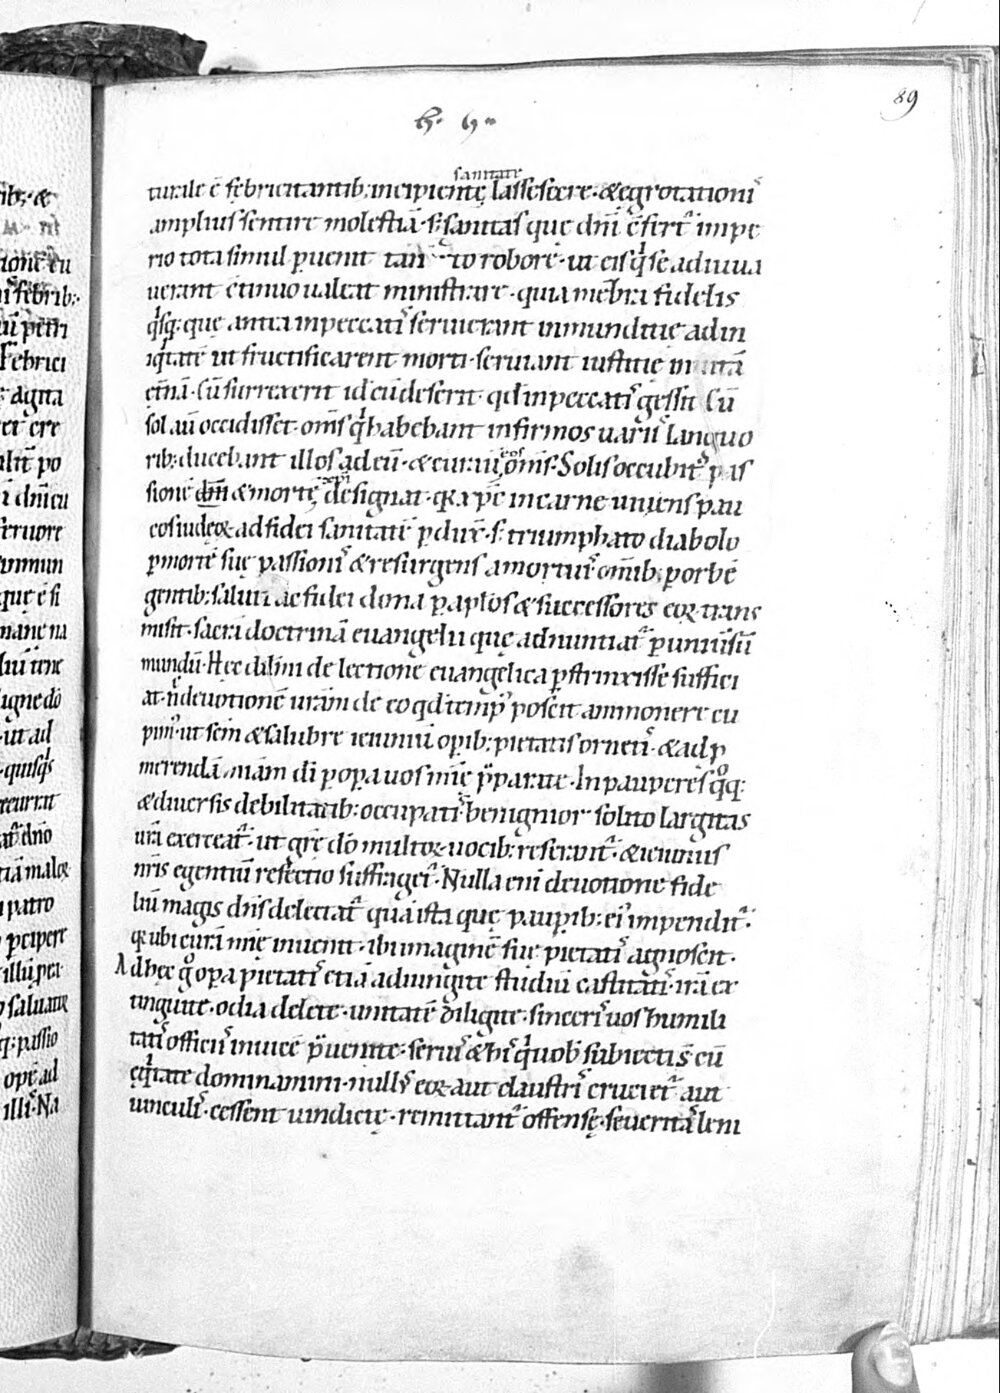 89
sanitate
turale ē febricitantib; incipientę lassescere · & egrotationiſ
ampliuſ sentire moleſtiā · s; sanitaſ que dn̄i cōfert᷑ impe
rio tota simul ꝑuenit
robore · ut eiſ q' se adiuua
uerant cōtinuo ualeat miniſtrare · quia mēbra fidelis
q'sq; que antea in peccatiſ seruierant inmunditie ad in
iq'tatē ut fructificarent morti · seruiant iuſtitie in uitā
et̄nā · Cū surrexerit id eū deserit qd̄ in peccatiſ gessit Cū
sol aū occidisset · om̄s q' habebant infirmos uariiſ languo
rib; ducebant illos ad eū · & curauit eos om̄s · Soliſ occubitꝰ pas
sionē dn̄i & mortē designat · q
in carne uiuens pau
cos iudęoꝝ ad fidei sanitatē ꝑdux̄ · s; triumphato diabolo
ꝑ mortē suę passioniſ & resurgens a mortuiſ om̄ib; ꝑ orbē
gentib; salutiſ ac fidei dona ꝑ apl̄os & successores eoꝝ trans
misit · sacrā doctrinā euangelii quę adnuntiat᷑ ꝑ uniuersū
mundū · Hęc dilm̄i de lectione euangelica ꝑstrinxisse suffici
at · nc̄ deuotionē ur̄am de eo qd̄ tempꝰ poscit ammonere cu
pimꝰ · ut scm̄ & salubre ieiuniū oꝑib; pietatis ornetiſ · & ad ꝓ
merendā
dī ꝓ oꝑa uos mīę p̄parate · In pauperes q°q;
& diuersis debilitatib; occupatoſ benignior solito largitas
ur̄a exerceat᷑ · ut grę dō multoꝝ uocib; reserant᷑ · & ieiuniis
nr̄is egentiū refectio suffraget᷑ · Nulla enī deuotione fide
liū magis dn̄s delectat᷑ quā iſta quę pauꝑib; eiꝰ impendit᷑ ·
ubi curā mīę inuenit · ibi imaginē suę pietatiſ agnoscit ·
Ad hęc g° oꝑa pietatiſ etiā adiungite ſtudiū caſtitatiſ · irā ex
tinguite · odia delete · unitatē diligite · sinceriſ uos humili
tatiſ officiiſ inuicē p̄uenite · seruiſ & hiſ q' uob̄ subiecti sē cū
eq'tate dominamini · nullꝰ eoꝝ aut clauſtriſ crucie᷑t aut
uinculiſ · cessent uindictę · remittant᷑ offensę · seueritaſ leni